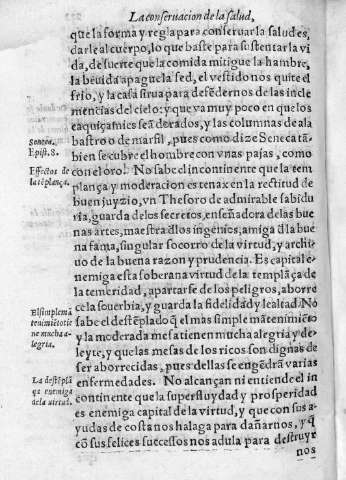 La conseruacion de la salud,
que la forma y regla para conseruar la salud es,
darle al cuerpo, lo que baste para sustentar la vi
da, de suerte que la comida mitigue la hambre,
la beuida apague la sed, el vestido nos quite el
frio, y la casa sirua para defēdernos de las incle
mencias del cielo: y que va muy poco en que los
çaquiçamies seā dorados, y las columnas de ala
bastro o de marfil, pues como dize Seneca tā-
bien se cubre el hombre con vnas pajas, como
con el oro. No sabe el incontinente que la tem
plança y moderacion es tenax en la rectitud de
buen juyzio, vn Thesoro de admirable sabidu
ria, guarda de los secretos, enseñadora de las bue
nas artes, maestra đlos ingenios, amiga đla bue
na fama, singular socorro de la virtud, y archi
uo de la buena razon y prudencia. Es capital e
nemiga esta soberana virtud de la templāça de
la temeridad, apartase de los peligros, aborre
ce la souerbia, y guarda la fidelidad y lealtad. No
sabe el destēplado q̄ el mas simple mātenimiēto
y la moderada mesa tienen mucha alegria y de-
leyte, y que las mesas de los ricos son dignas de
ser aborrecidas, pues dellas se engēdrā varias
enfermedades. No alcançan ni entiende el in
continente que la superfluydad y prosperidad
es enemiga capital de la virtud, y que con sus a-
yudas de costa nos halaga para dañarnos, y q̄
cō sus felices successos nos adula para destruyr
nos
Seneca.
Epist. 8.
Effectos de
la tēplança.
El simple mā
tenimiēto tie
ne mucha a-
legria.
La destēplā
ça enemiga
de la virtud.